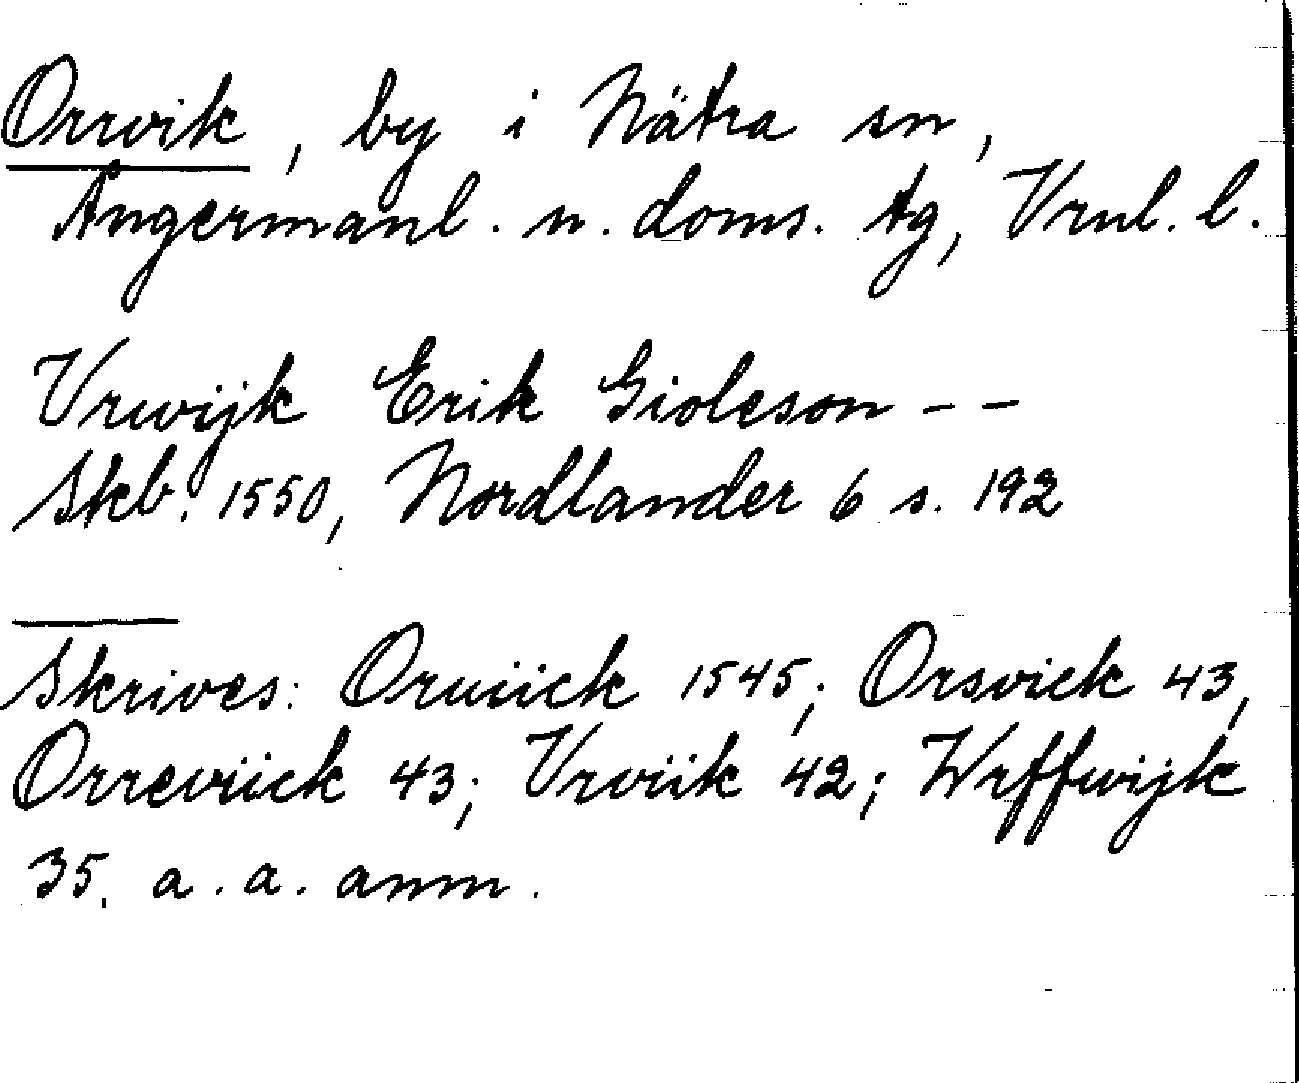 Orrvik, by i Nätra sn,
Ångermanl. n. doms. tg, Vrnl. l.
Vrwijk Erik Gioleson - -
Skb. 1550, Nordlander 6 s. 192
Skrives: Oruiick 1545; Orsvick 43,
Orreviick 43; Vrviik 42; Wrffwijk
35. a. a. anm.